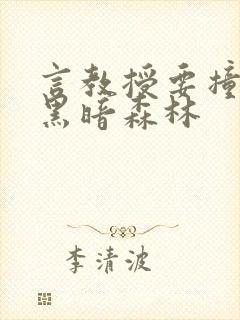 言教授要撞
黑暗森林
李清波